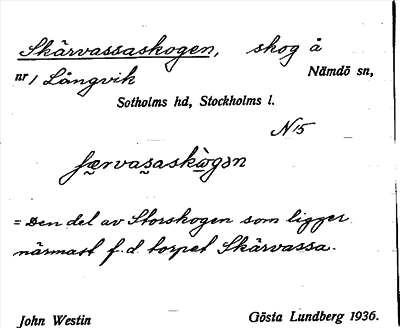 Skärvassaskogen, skog å
nr 1 Långvik Nämdö sn,
Sotholms hd, Stockholms l.
N 15
= Den del av Storskogen som ligger
närmast f.d. torpet Skärvassa.
John Westin Gösta Lundberg 1936.